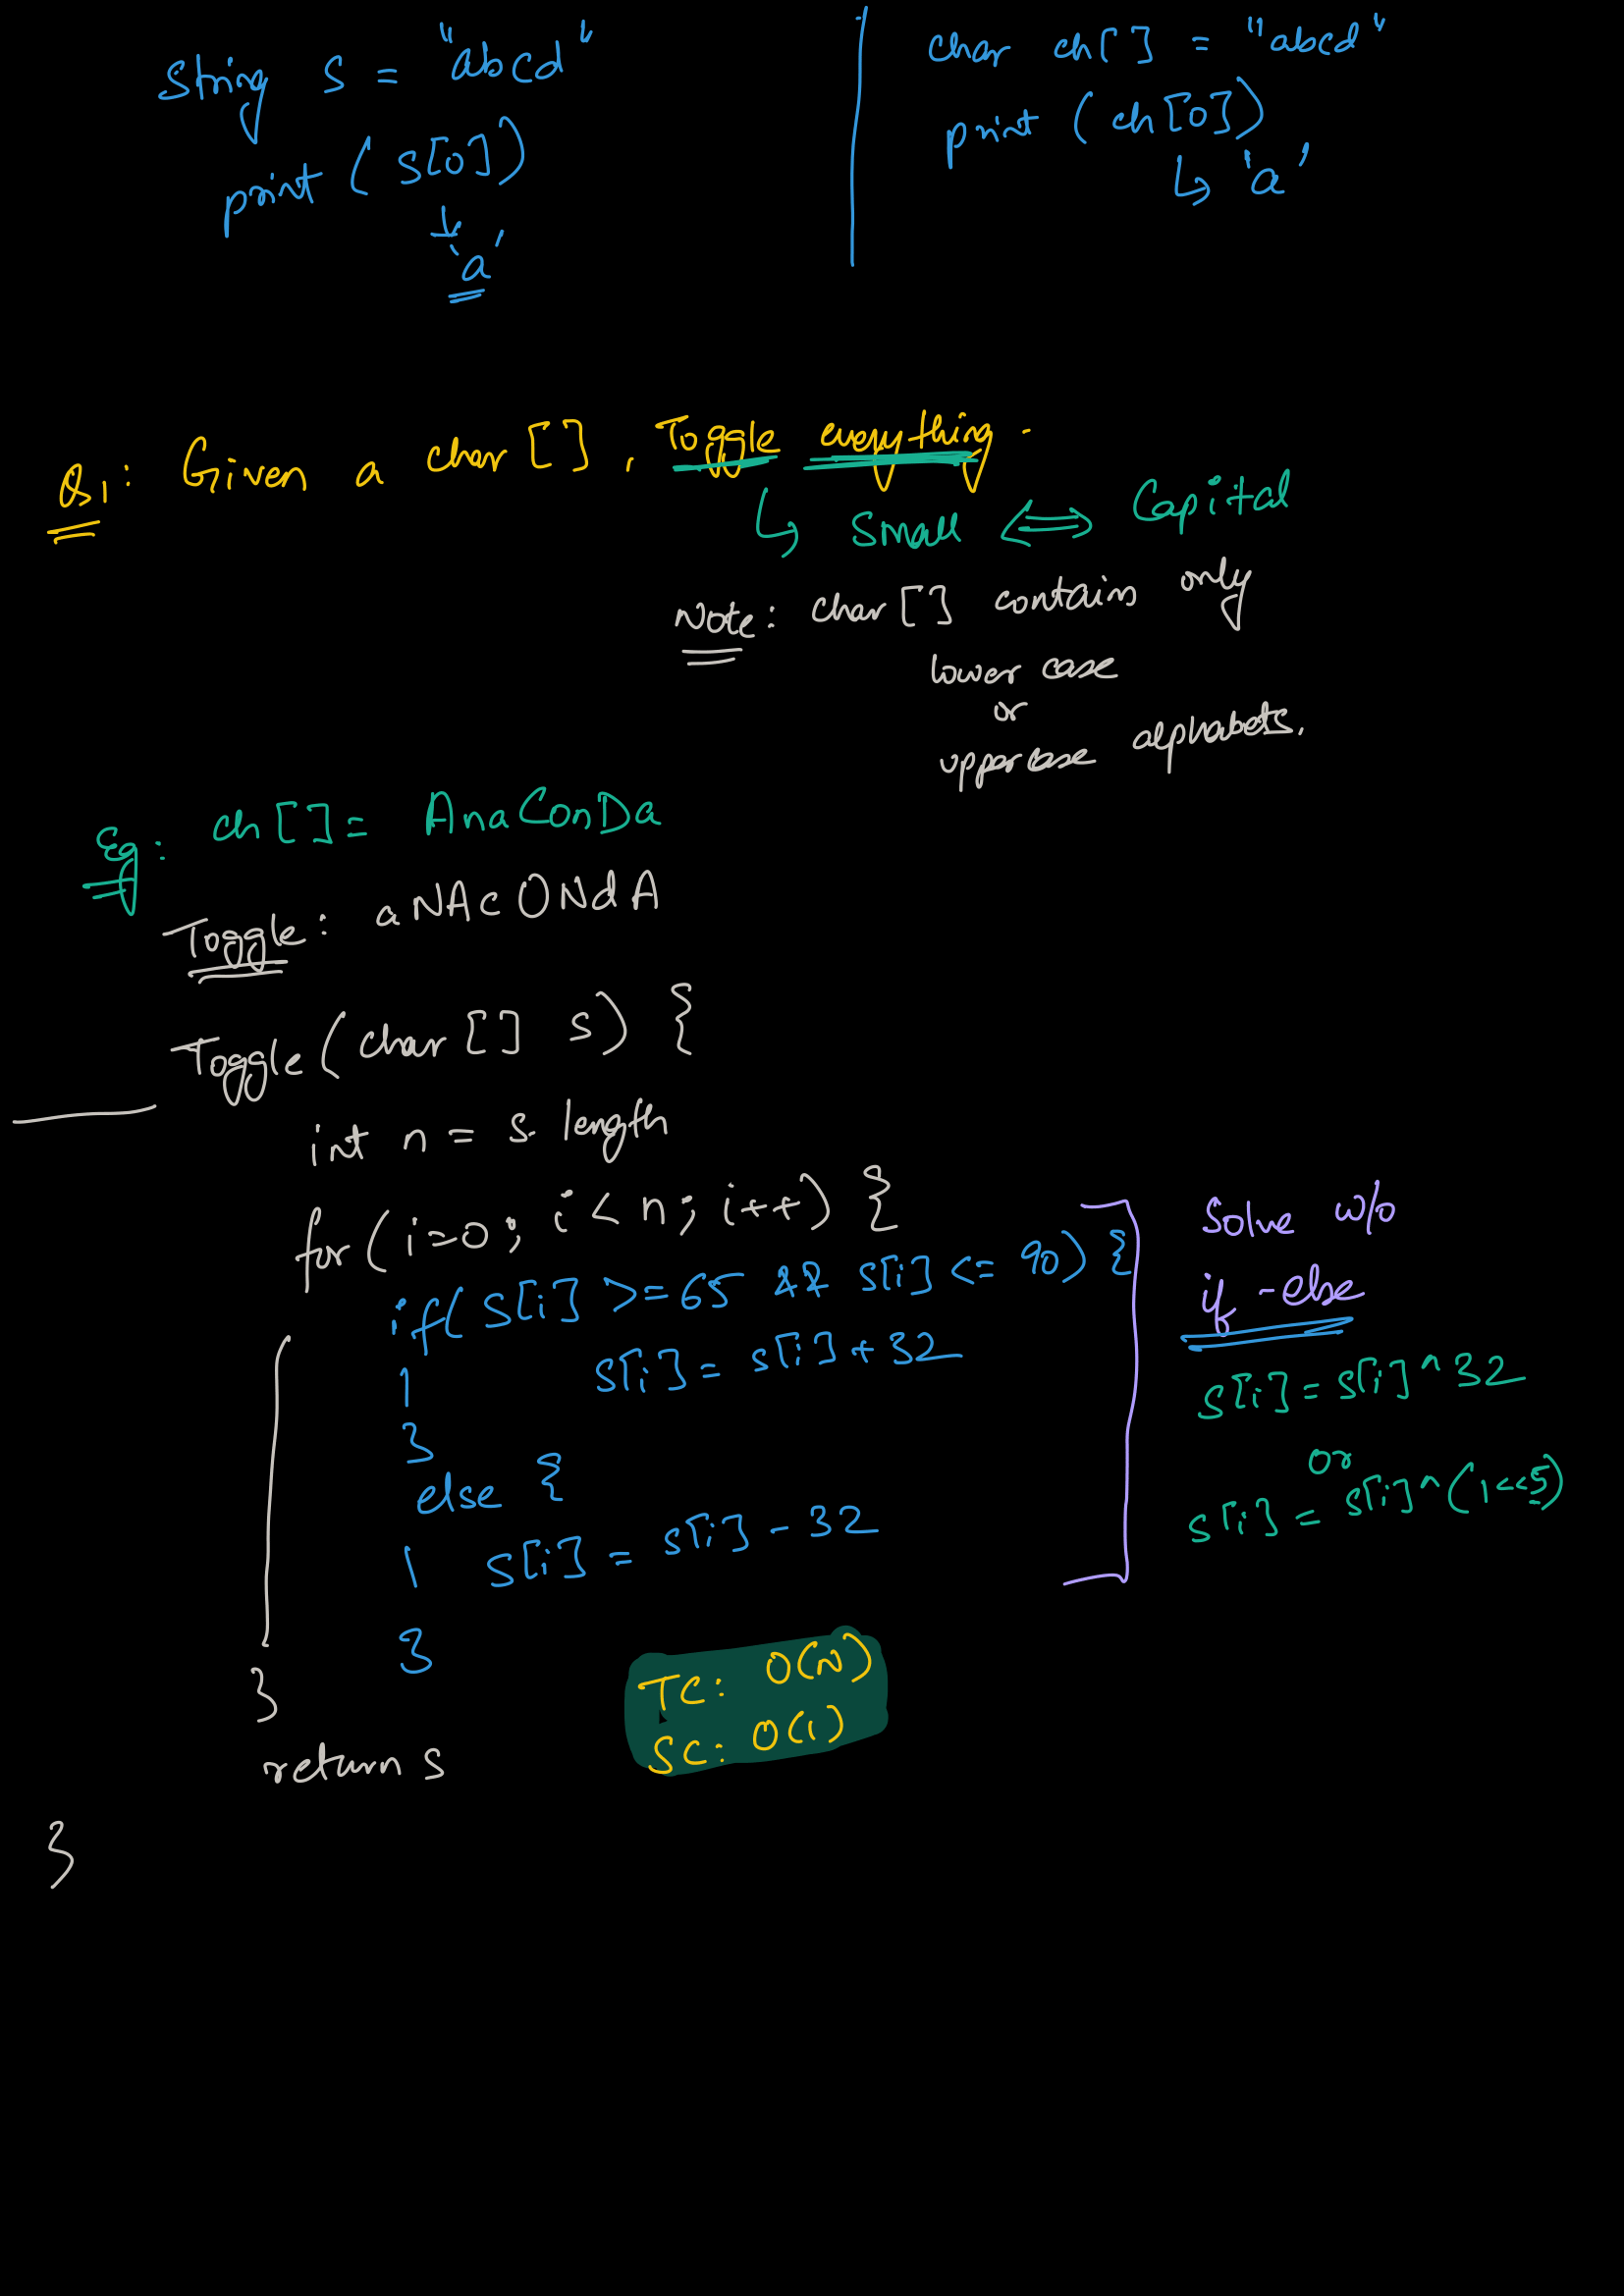 String s = "abcd"
print (s[0])
'a'
char ch[] = "abcd"
print (ch[0])
↳ 'a'
Q1: Given a char [], Toggle everything.
↳ Small ⇔ Capital
Note: char [] contains only
lower case
or
uppercase alphabets.
Eg: ch []= AnaConDa
Toggle: aNAcONdA
Toggle (char [] s) {
int n = s. length
for (i=0; i < n; i++) {
if( s[i] >= 65 && s[i] <= 90) {
s[i] = s[i] + 32
}
else {
s[i] = s[i] - 32
}
}
return s
}
Solve w/o
if-else
s[i] = s[i] ^ 32
or
s[i] = s[i] ^ (1<<5)
TC: O(N)
SC: O(1)